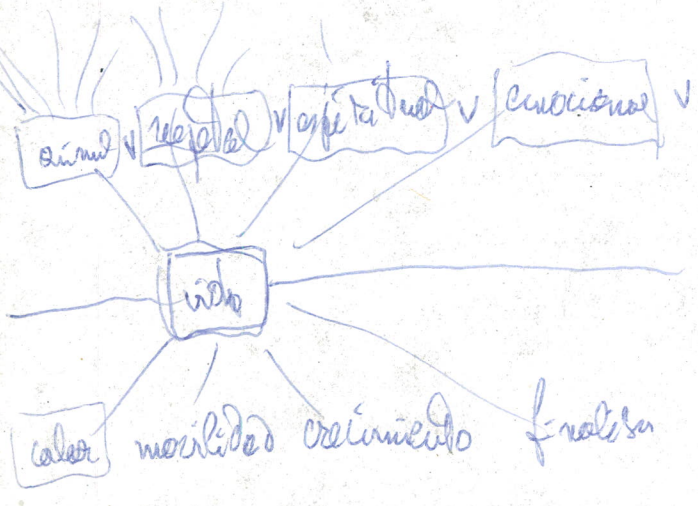 animal v vegetal v espiritual v emocional v
vida
calor movilidad crecimiento